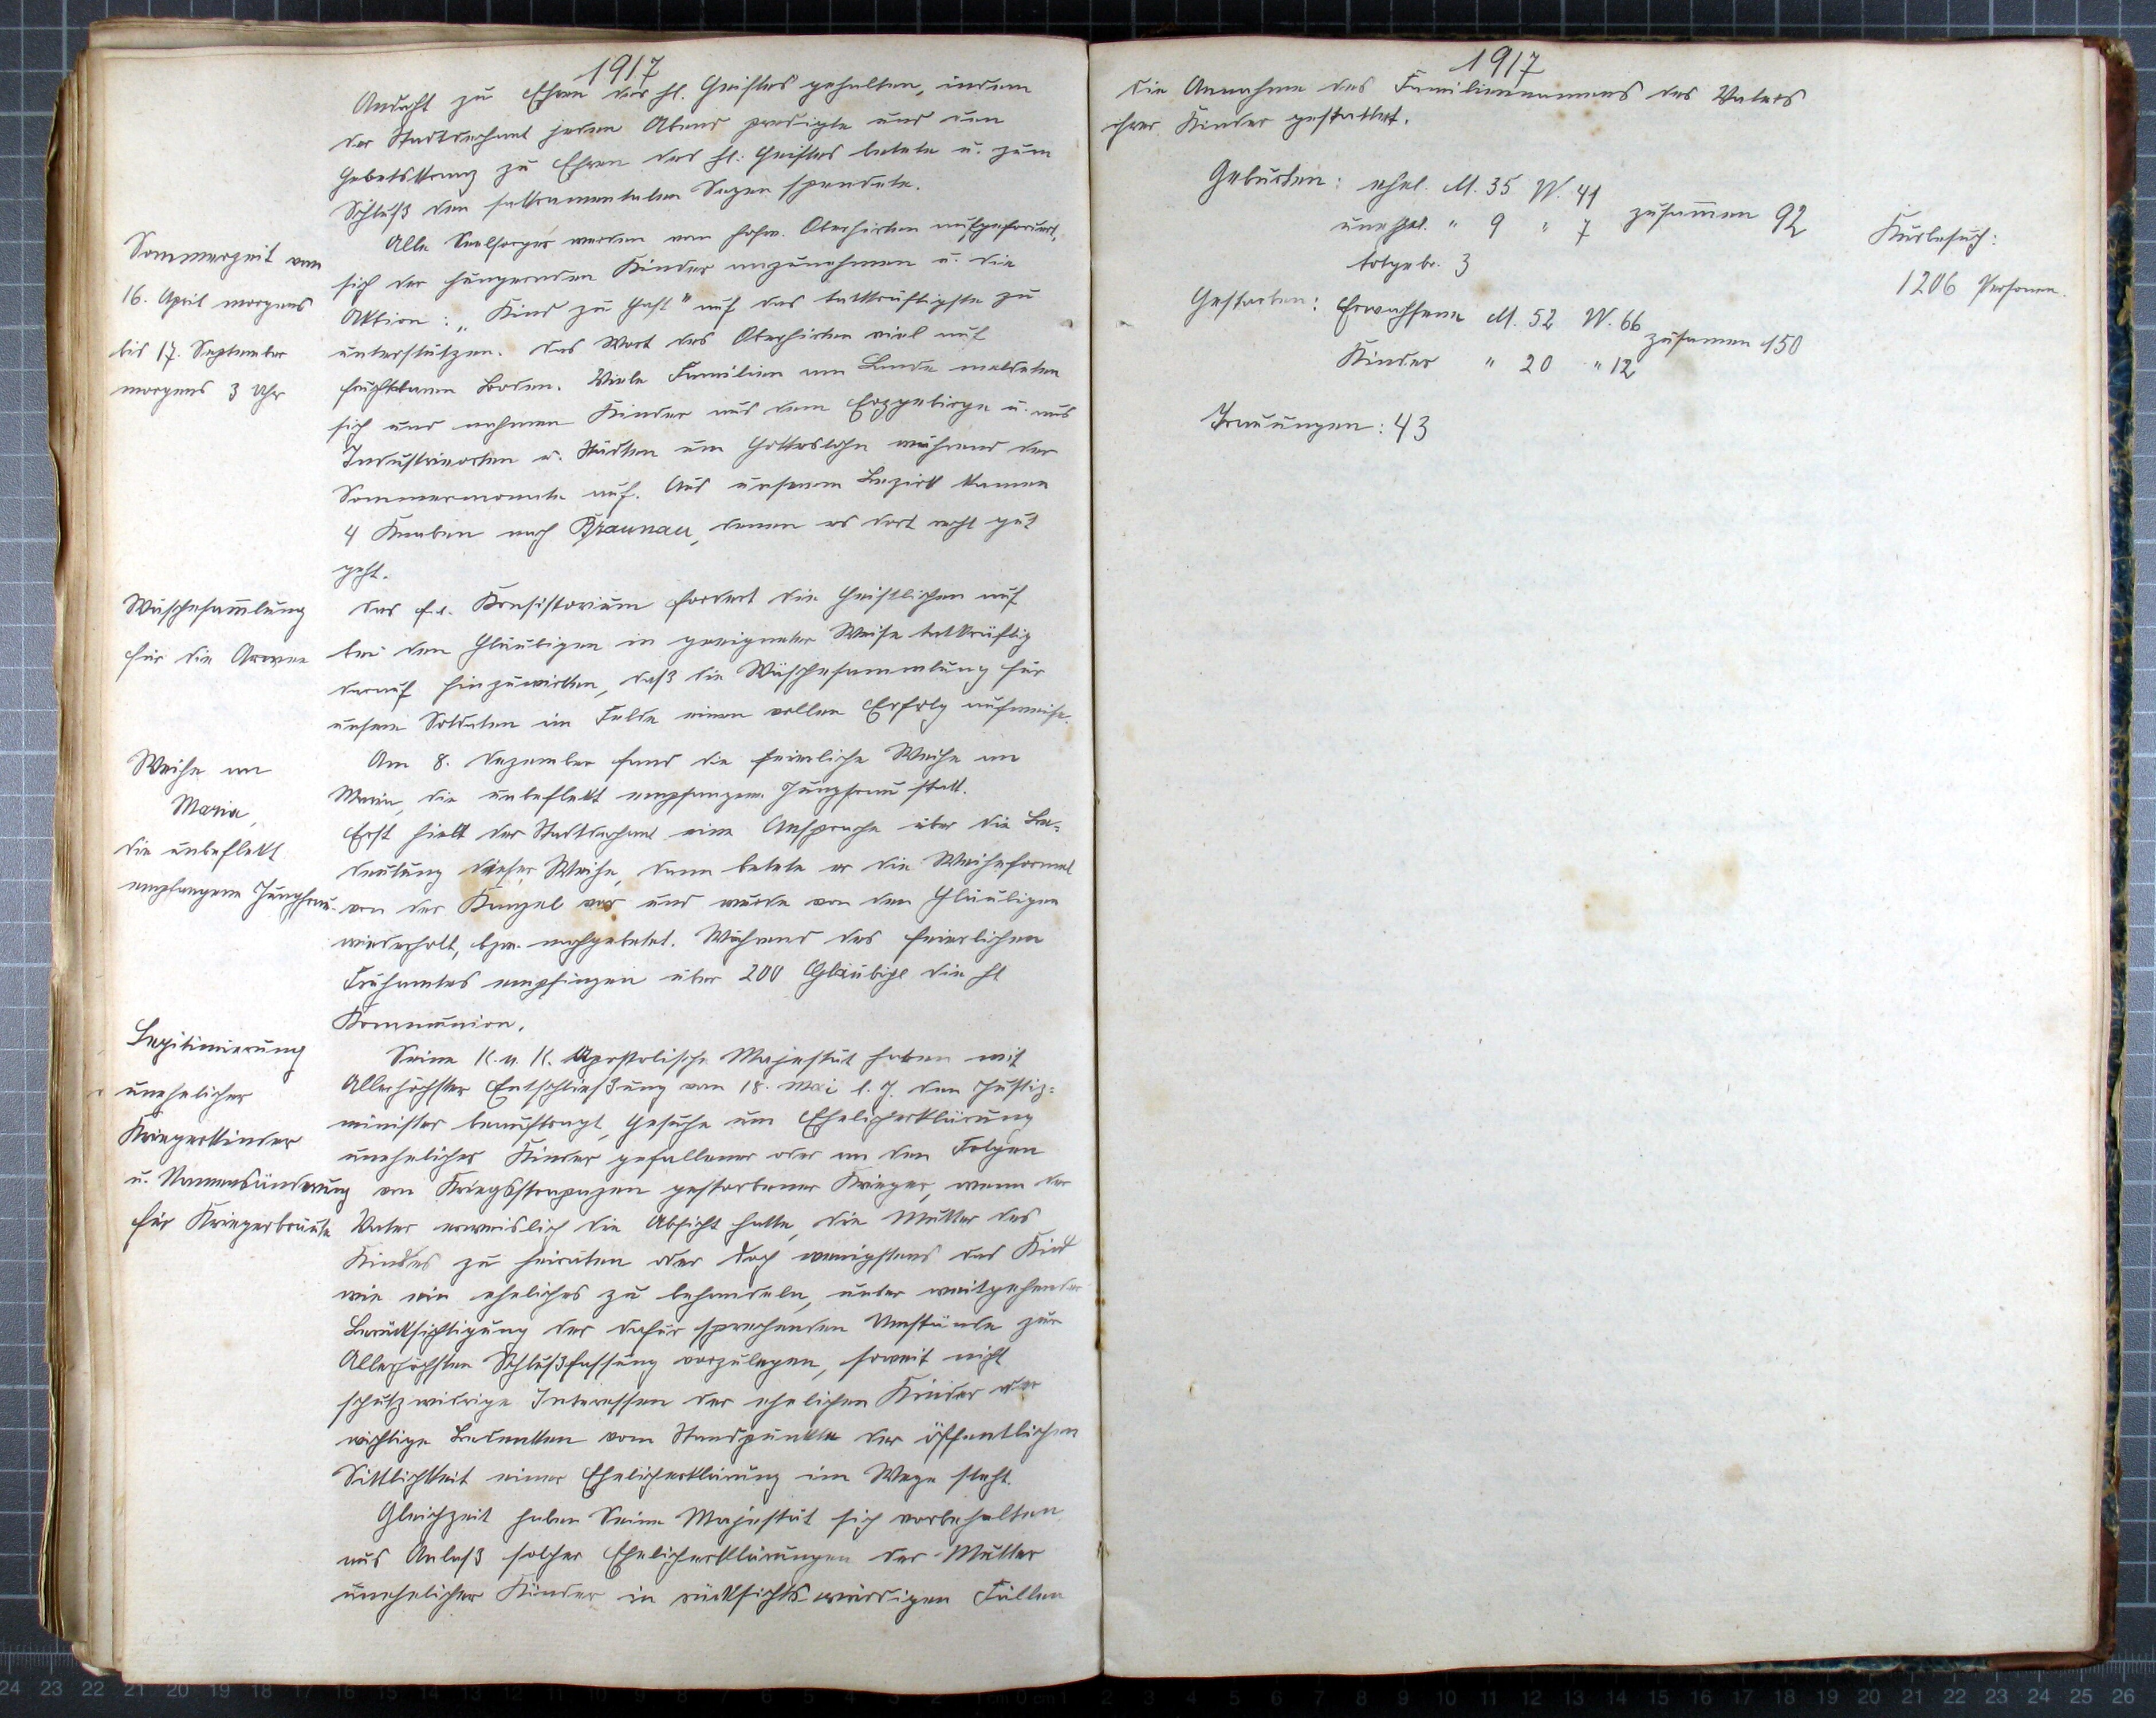 1917
Andacht zu Ehren des hl. Geistes gehalten, indem
der Stadtdechant jeden Abend predigte und den
Gebetskranz zu Ehren des hl. Geistes betete u. zum
Schluß den sakramentalen Segen spendete.
Sommerzeit vom
16. April morgens
bis 17. September
morgens 3 Uhr
Alle Seelsorger werden vom hohw. Oberhirten aufgefordert,
sich der hungernden Kinder anzunehmen u. die
Aktion: „Kind zu Gast" auf das tatkräftigste zu
unterstützen. Das Wort des Oberhirten viel auf
fruchtbaren Boden. Viele Familien am Lande meldeten
sich und nahmen Kinder aus dem Erzgebirge u. aus
Industrieorten u. Städten um Gotteslohn während der
Sommermonate auf. Aus unserem Bezirk kamen
4 Knaben nach Braunau, denen es dort recht gut
geht.
Wäschesam̄lung
für die Armee
Das f.e. Konsistorium fordert die Geistlichen auf
bei den Gläubigen in geeigneter Weise tatkräftig
darauf hinzuwirken, daß die Wäschesammlung für
unsere Soldaten im Felde einen vollen Erfolg aufweise.
Weihe an
Maria,
die unbeflekt
empfangene Jungfrau.
Am 8. Dezember fand die feierliche Weihe an
Maria, die unbeflekt empfangene Jungfrau statt.
Erst hielt der Stadtdechant eine Ansprache über die Be-
deutung dieser Weihe, dann betete er die Weiheformel
von der Kanzel vor und wurde von den Gläubigen
wiederholt, bzw. nachgebetet. Während des feierlichen
Frühamtes empfingen über 200 Gläubige die hl
Kommunion.
Legitimierung
unehelicher
Kriegerkinder
u. Namensänderung
für Kriegerbräute
Seine K. u. K. Apostolische Majestät haben mit
Allerhöchster Entschließung vom 18. Mai l. J. den Justiz-
minister beauftragt, Gesuche um Ehelicherklärung
unehelicher Kinder gefallener oder an den Folgen
von Kriegsstrapazen gestorbener Krieger, wenn der
Vater erweislich die Absicht hatte, die Mutter des
Kindes zu heiraten oder doch wenigstens das Kind
wie ein eheliches zu behandeln, unter weitgehender
Berücksichtigung der dafür sprechenden Umstände zur
Allerhöchsten Schlußfassung vorzulegen, soweit nicht
schutzwürdige Interessen der ehelichen Kinder oder
wichtige Bedenken vom Standpunkte der öffentlichen
Sittlichkeit einer Ehelicherklärung im Wege steht.
Gleichzeit haben Seine Majestät sich vorbehalten
aus Anlaß solcher Ehelicherklärungen der Mutter
unehelicher Kinder in rücksichtswürdigen Fällen
1917
die Annahme des Familiennamens des Vaters
ihrer Kinder gestattet.
Geburten: ehel. M. 35 W. 41
unehel. " 9 " 7 zusam̄en 92
totgeb. 3
Kurbesuch:
1206 Personen.
Gestorben: Erwachsene M. 52 W. 66
Kinder " 20 " 12 zusamen 150
Trauungen: 43